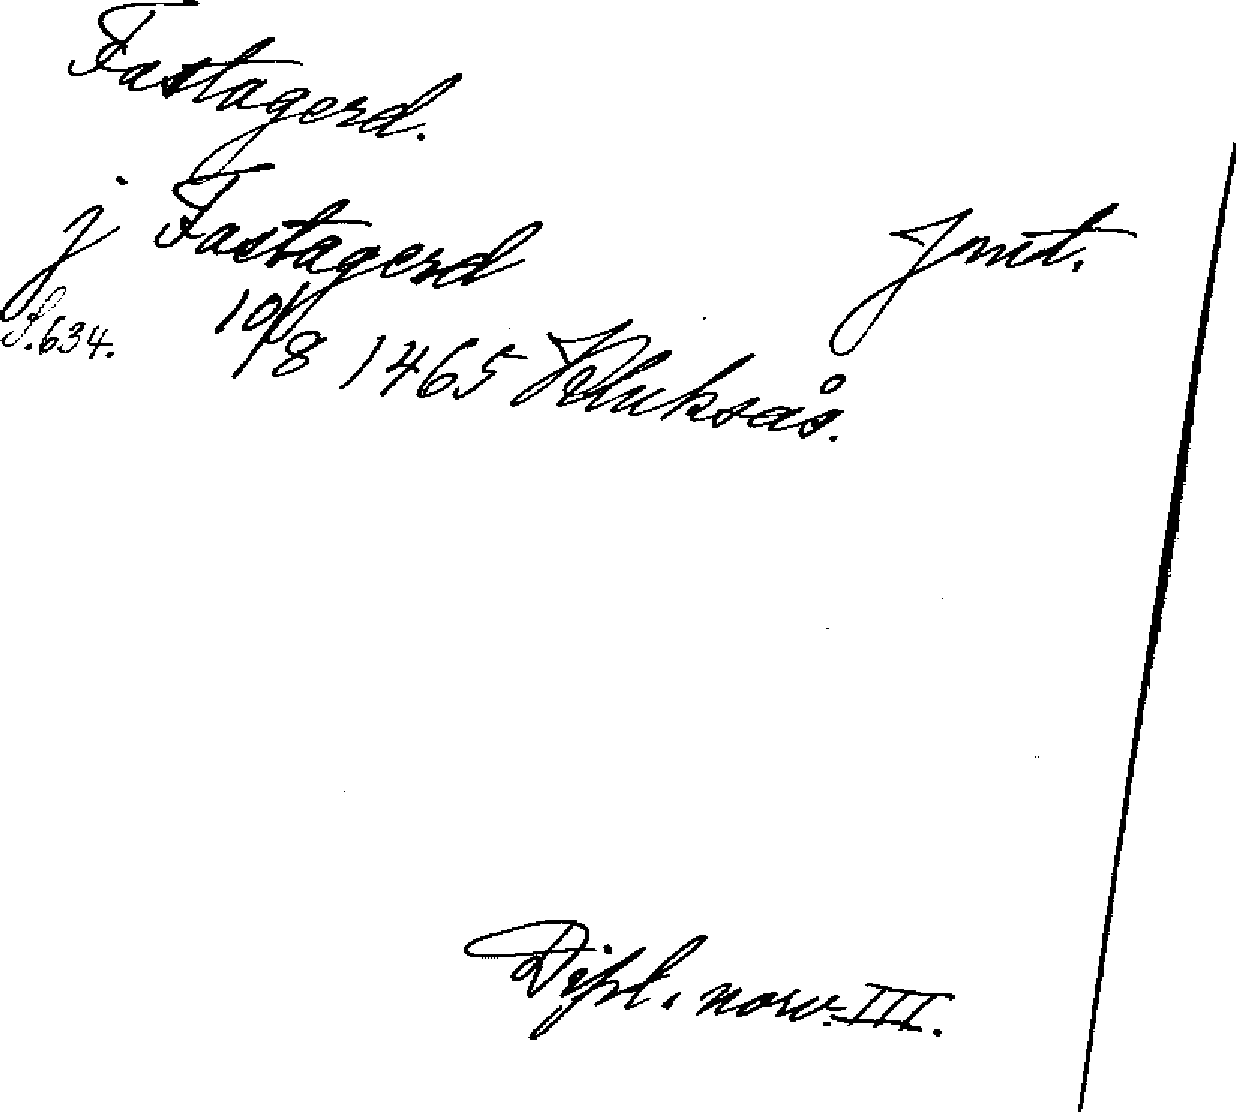 Fastagerd.
j Fastagerd Jmt.
S. 634. 10/8 1465 Kluksås.
Dipl. norv. III.